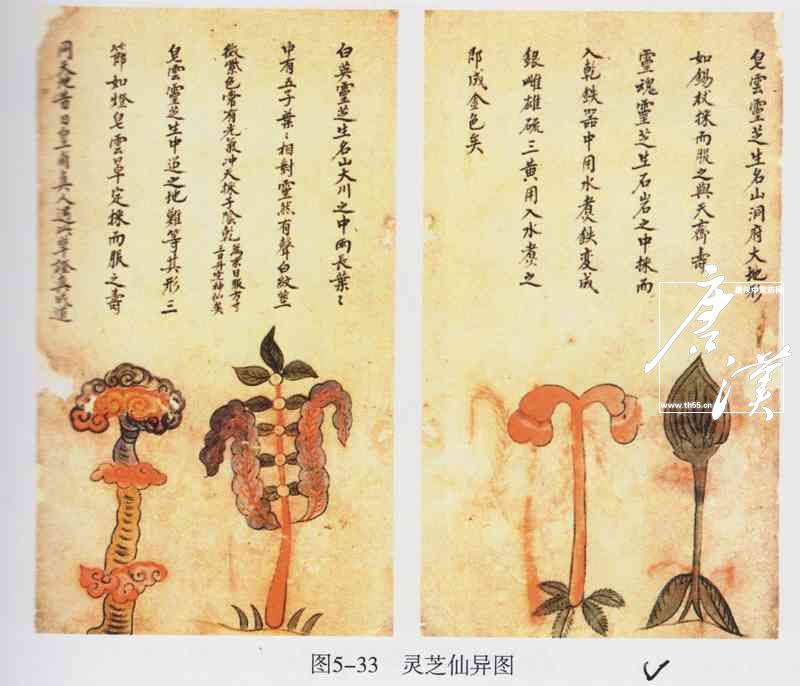 皂雲靈芝生名山洞府大地形
如錫杖採而服之與天齊壽
靈魂靈芝生石岩之中採而
入乾鉄器中用水煮鉄変成
銀雌雄硫三黄用入水煮之
即成金色矣
白英靈芝生名山大川之中両長葉〻
中有五子葉〻相對靈然有聲白紋莖
微紫色常有光氣冲天採子陰乾
為末日服方寸
三日昇空神仙矣
皂雲靈芝生中岳之地難等其形三
節如燈皂雲草定採而服之壽
同天地昔日皇甫真人遇此草證真成道
唐漢
唐漢中医药网
www.th55.cn
图5-33 灵芝仙异图